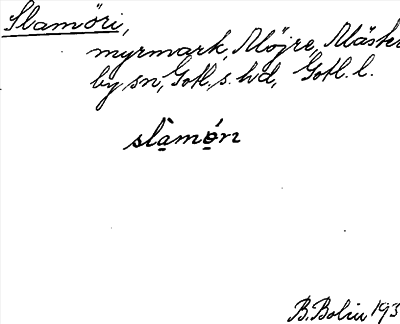 Slamöri,
myrmark, Möjre, Mäster
by sn, Gotl. s. hd, Gotl. l.
B. Bolin 193